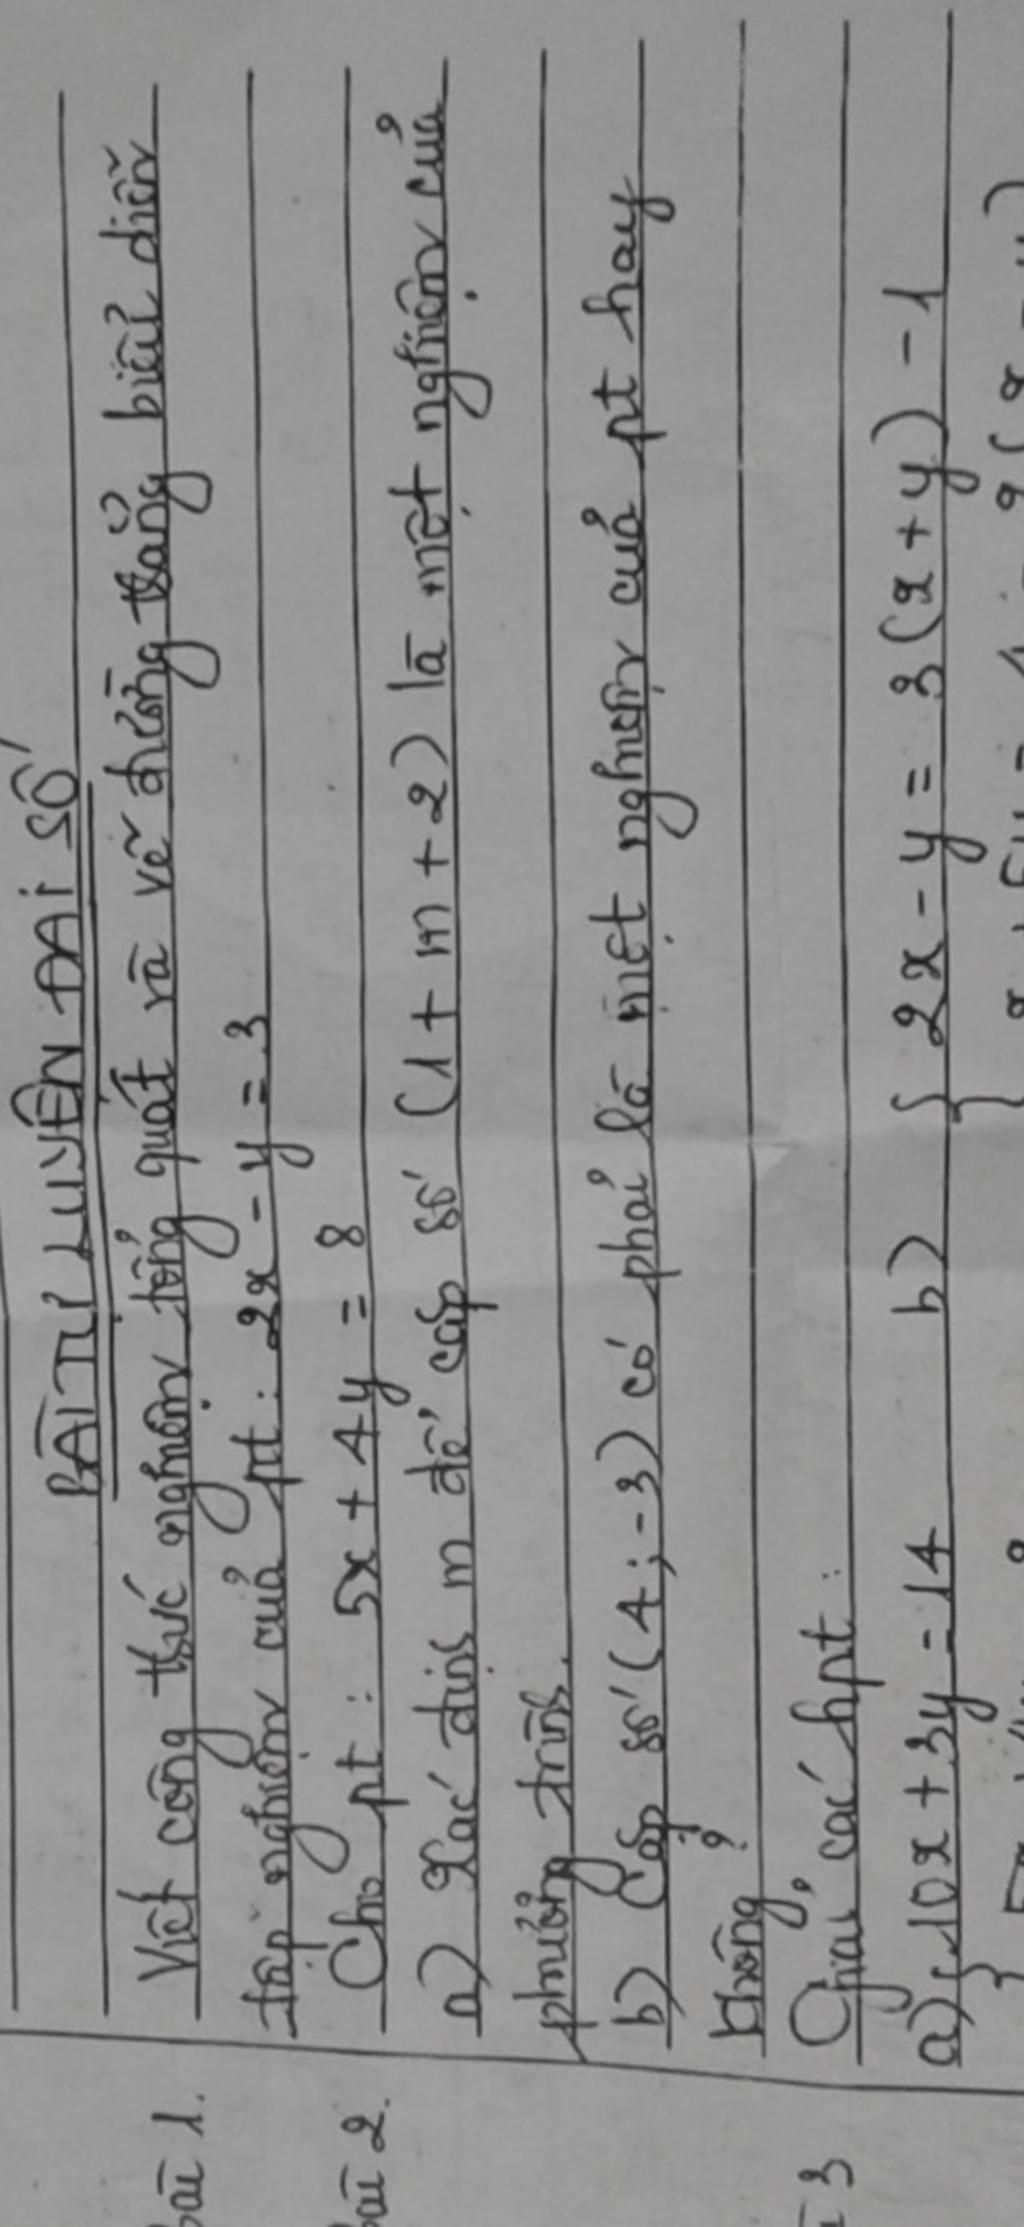 BÀI TỰ LUYỆN ĐẠI SỐ
Bài 1. Viết công thức nghiệm tổng quát và vẽ đường thẳng biểu diễn
tập nghiệm của pt: 2x - y = 3
Bài 2. Cho pt: 5x + 4y = 8
a) Xác định m để cặp số (1 + m + 2) là một nghiệm của
phương trình.
b) Cặp số (4; -3) có phải là một nghiệm của pt hay
không?
3 Giải các hpt:
a) { 10x + 3y = 14 b) { 2x - y = 3(x + y) - 1